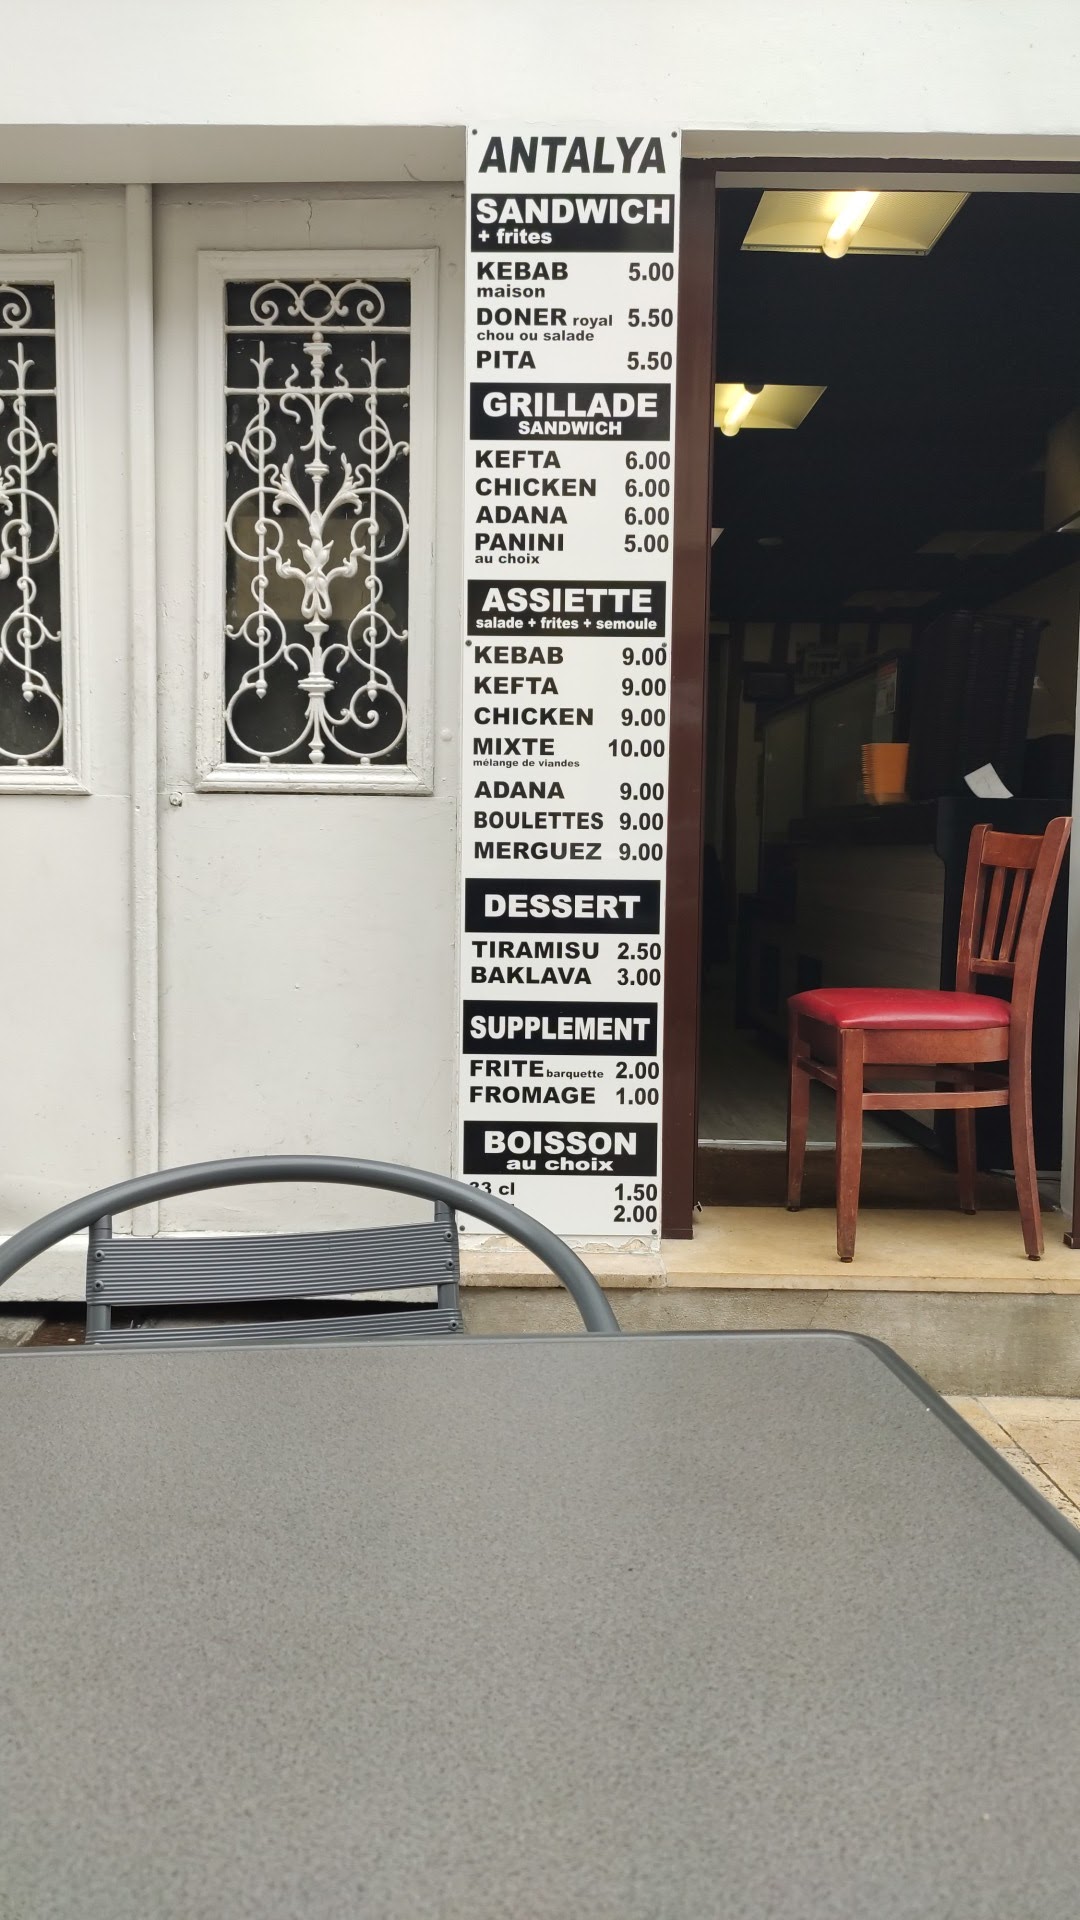 ANTALYA
SANDWICH
+ frites
KEBAB 5.00
maison
DONER royal 5.50
chou ou salade
PITA 5.50
GRILLADE
SANDWICH
KEFTA 6.00
CHICKEN 6.00
ADANA 6.00
PANINI 5.00
au choix
ASSIETTE
salade + frites + semoule
KEBAB 9.00
KEFTA 9.00
CHICKEN 9.00
MIXTE 10.00
mélange de viandes
ADANA 9.00
BOULETTES 9.00
MERGUEZ 9.00
DESSERT
TIRAMISU 2.50
BAKLAVA 3.00
SUPPLEMENT
FRITE barquette 2.00
FROMAGE 1.00
BOISSON
au choix
33 cl 1.50
2.00